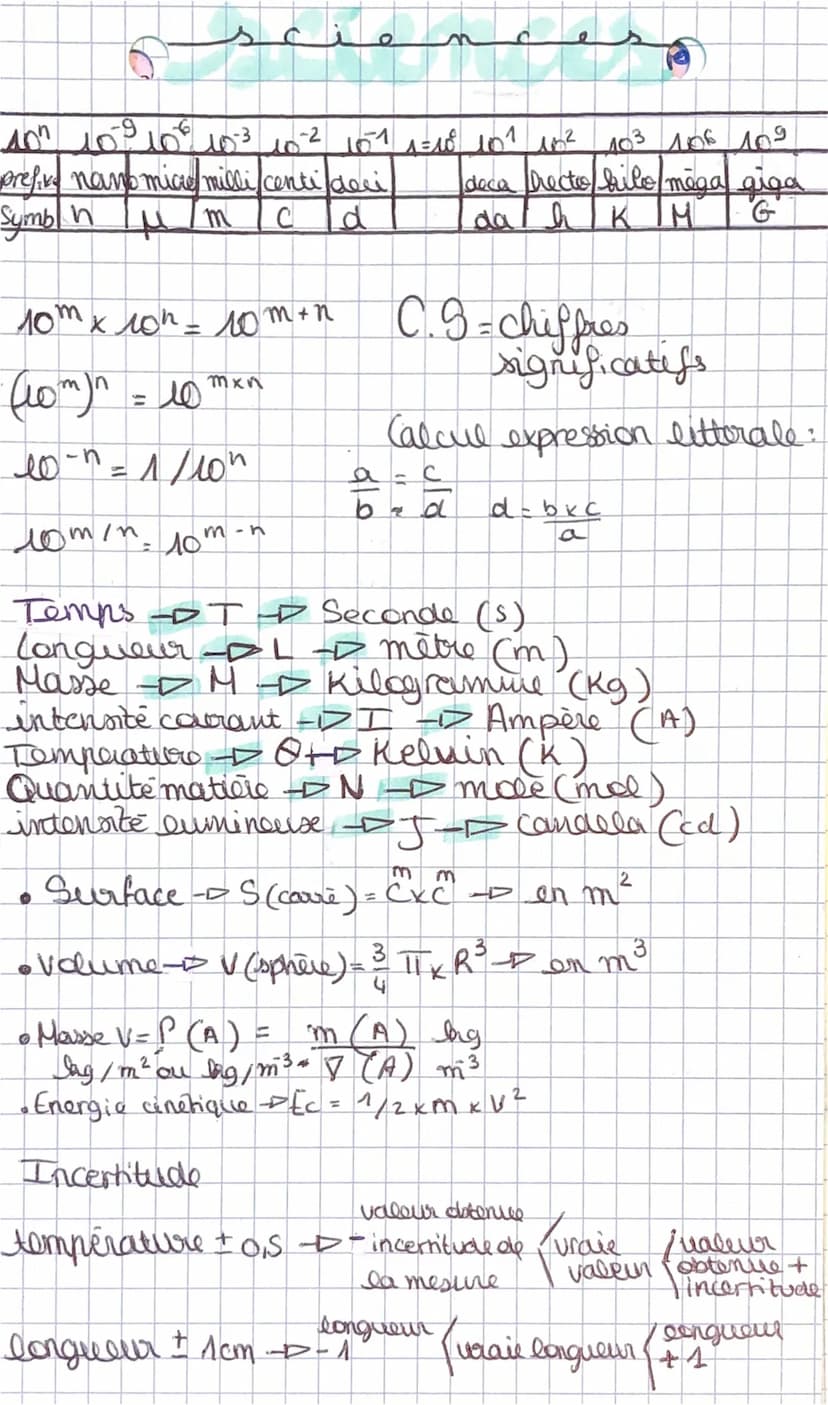 sciences
10ⁿ 10⁻⁹ 10⁻⁶ 10⁻³ 10⁻² 10⁻¹ 1=10⁰ 10¹ 10² 10³ 10⁶ 10⁹
prefixe nano micro milli centi deci deca hecto kilo méga giga
Symb n μ m c d da h K M G
10ᵐ x 10ⁿ = 10ᵐ⁺ⁿ
(10ᵐ)ⁿ = 10ᵐˣⁿ
10⁻ⁿ = 1/10ⁿ
10ᵐ/ⁿ = 10ᵐ⁻ⁿ
C.S = chiffres
significatifs
Calcul expression littorale :
a/b = c/d d = b x c / a
Temps → T → Seconde (s)
Longueur → L → mètre (m)
Masse → M → Kilogramme (Kg)
intensité courant → I → Ampère (A)
Température → Θ → Kelvin (K)
Quantité matière → N → mole (mol)
intensité lumineuse → J → Candela (cd)
• Surface → S (carré) = C x C → en m²
m m
• Volume → V (sphère) = 3/4 π x R³ → en m³
• Masse V = ρ (A) = m (A) kg
kg/m² ou kg/m⁻³ = V (A) m³
• Energie cinétique → Ec = 1/2 x m x v²
Incertitude
température ± 0,5 → - valeur obtenue
incertitude de
la mesure
⟨ vraie
valeur
⟨ valeur
obtenue +
incertitude
longueur ± 1cm → longueur
- 1
⟨ vraie longueur
⟨ longueur
+ 1